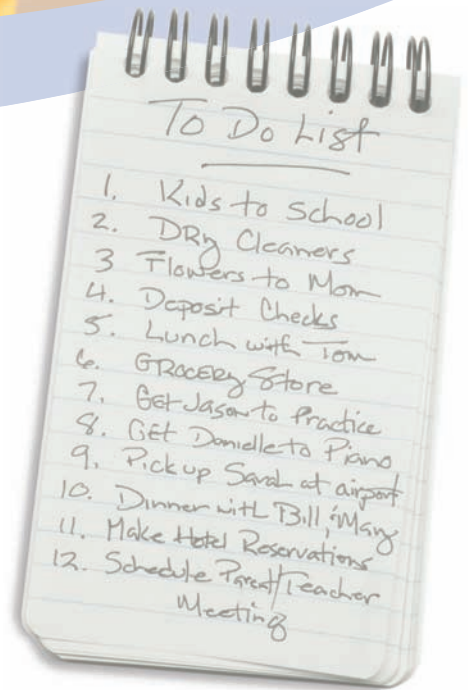 To Do List
1. Kids to School
2. DRy Cleaners
3 Flowers to Mom
4. Deposit Checks
5. Lunch with Tom
6. GROCERy Store
7. Get Jason to Practice
8. GEt Danielle to Piano
9. Pick up Sarah at airport
10. Dinner with Bill, Mary
11. Make Hotel Reservations
12. Schedule Parent/Teacher
Meeting